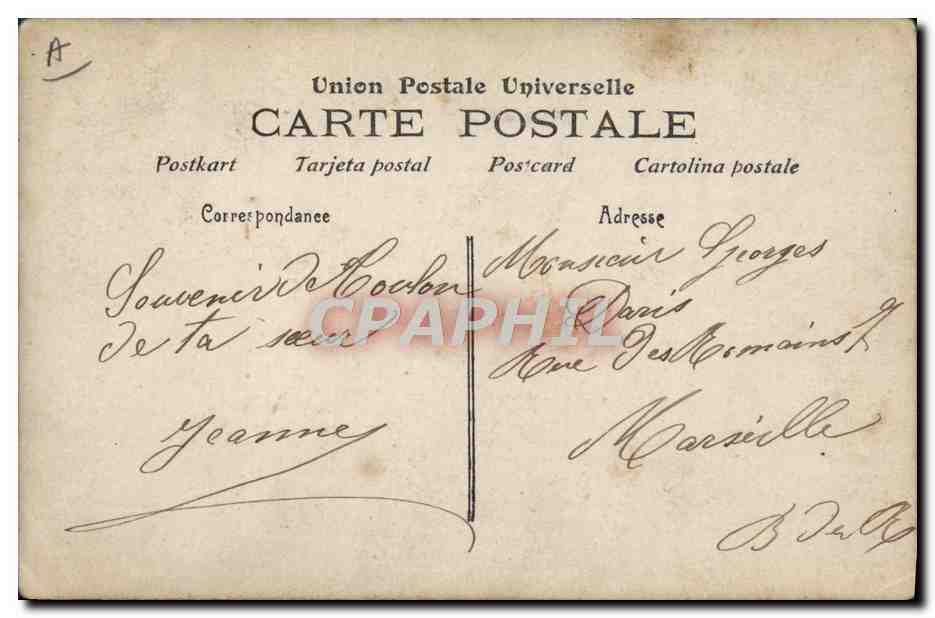 A
Union Postale Universelle
CARTE POSTALE
Postkart Tarjeta postal Postcard Cartolina postale
Correspondance
Souvenir de Toulon
de ta sœur
Jeanne
Adresse
Monsieur Georges
Paris
Rue des Romains 7
Marseille
B du R
CPAPHIL